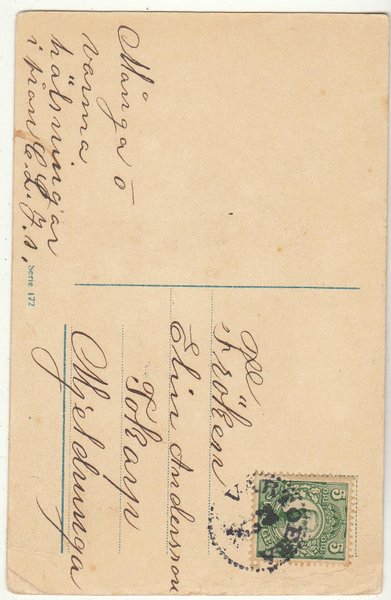 Många o
varma
hälsningar
från
Serie 172
Fröken
Elin Andersson
Tokarp
Mjeldrunga
5 5